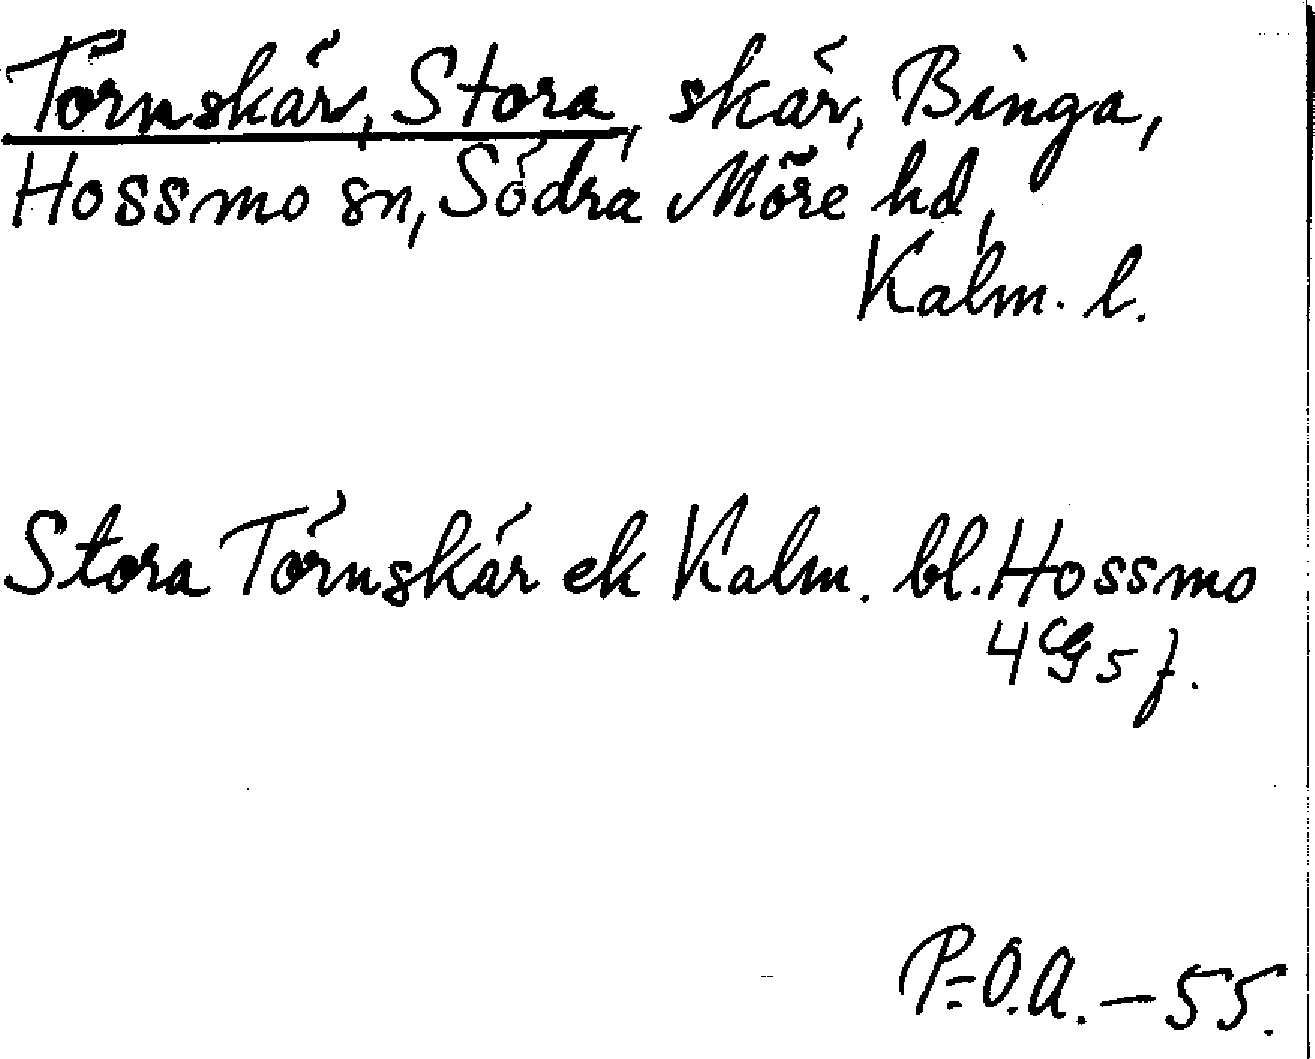 Törnskär, Stora, skär, Binga,
Hossmo sn, Södra Möre hd,
Kalm. l.
Stora Törnskär ek Kalm. bl. Hossmo
4 G 5 f.
P.-O.A. – 55.